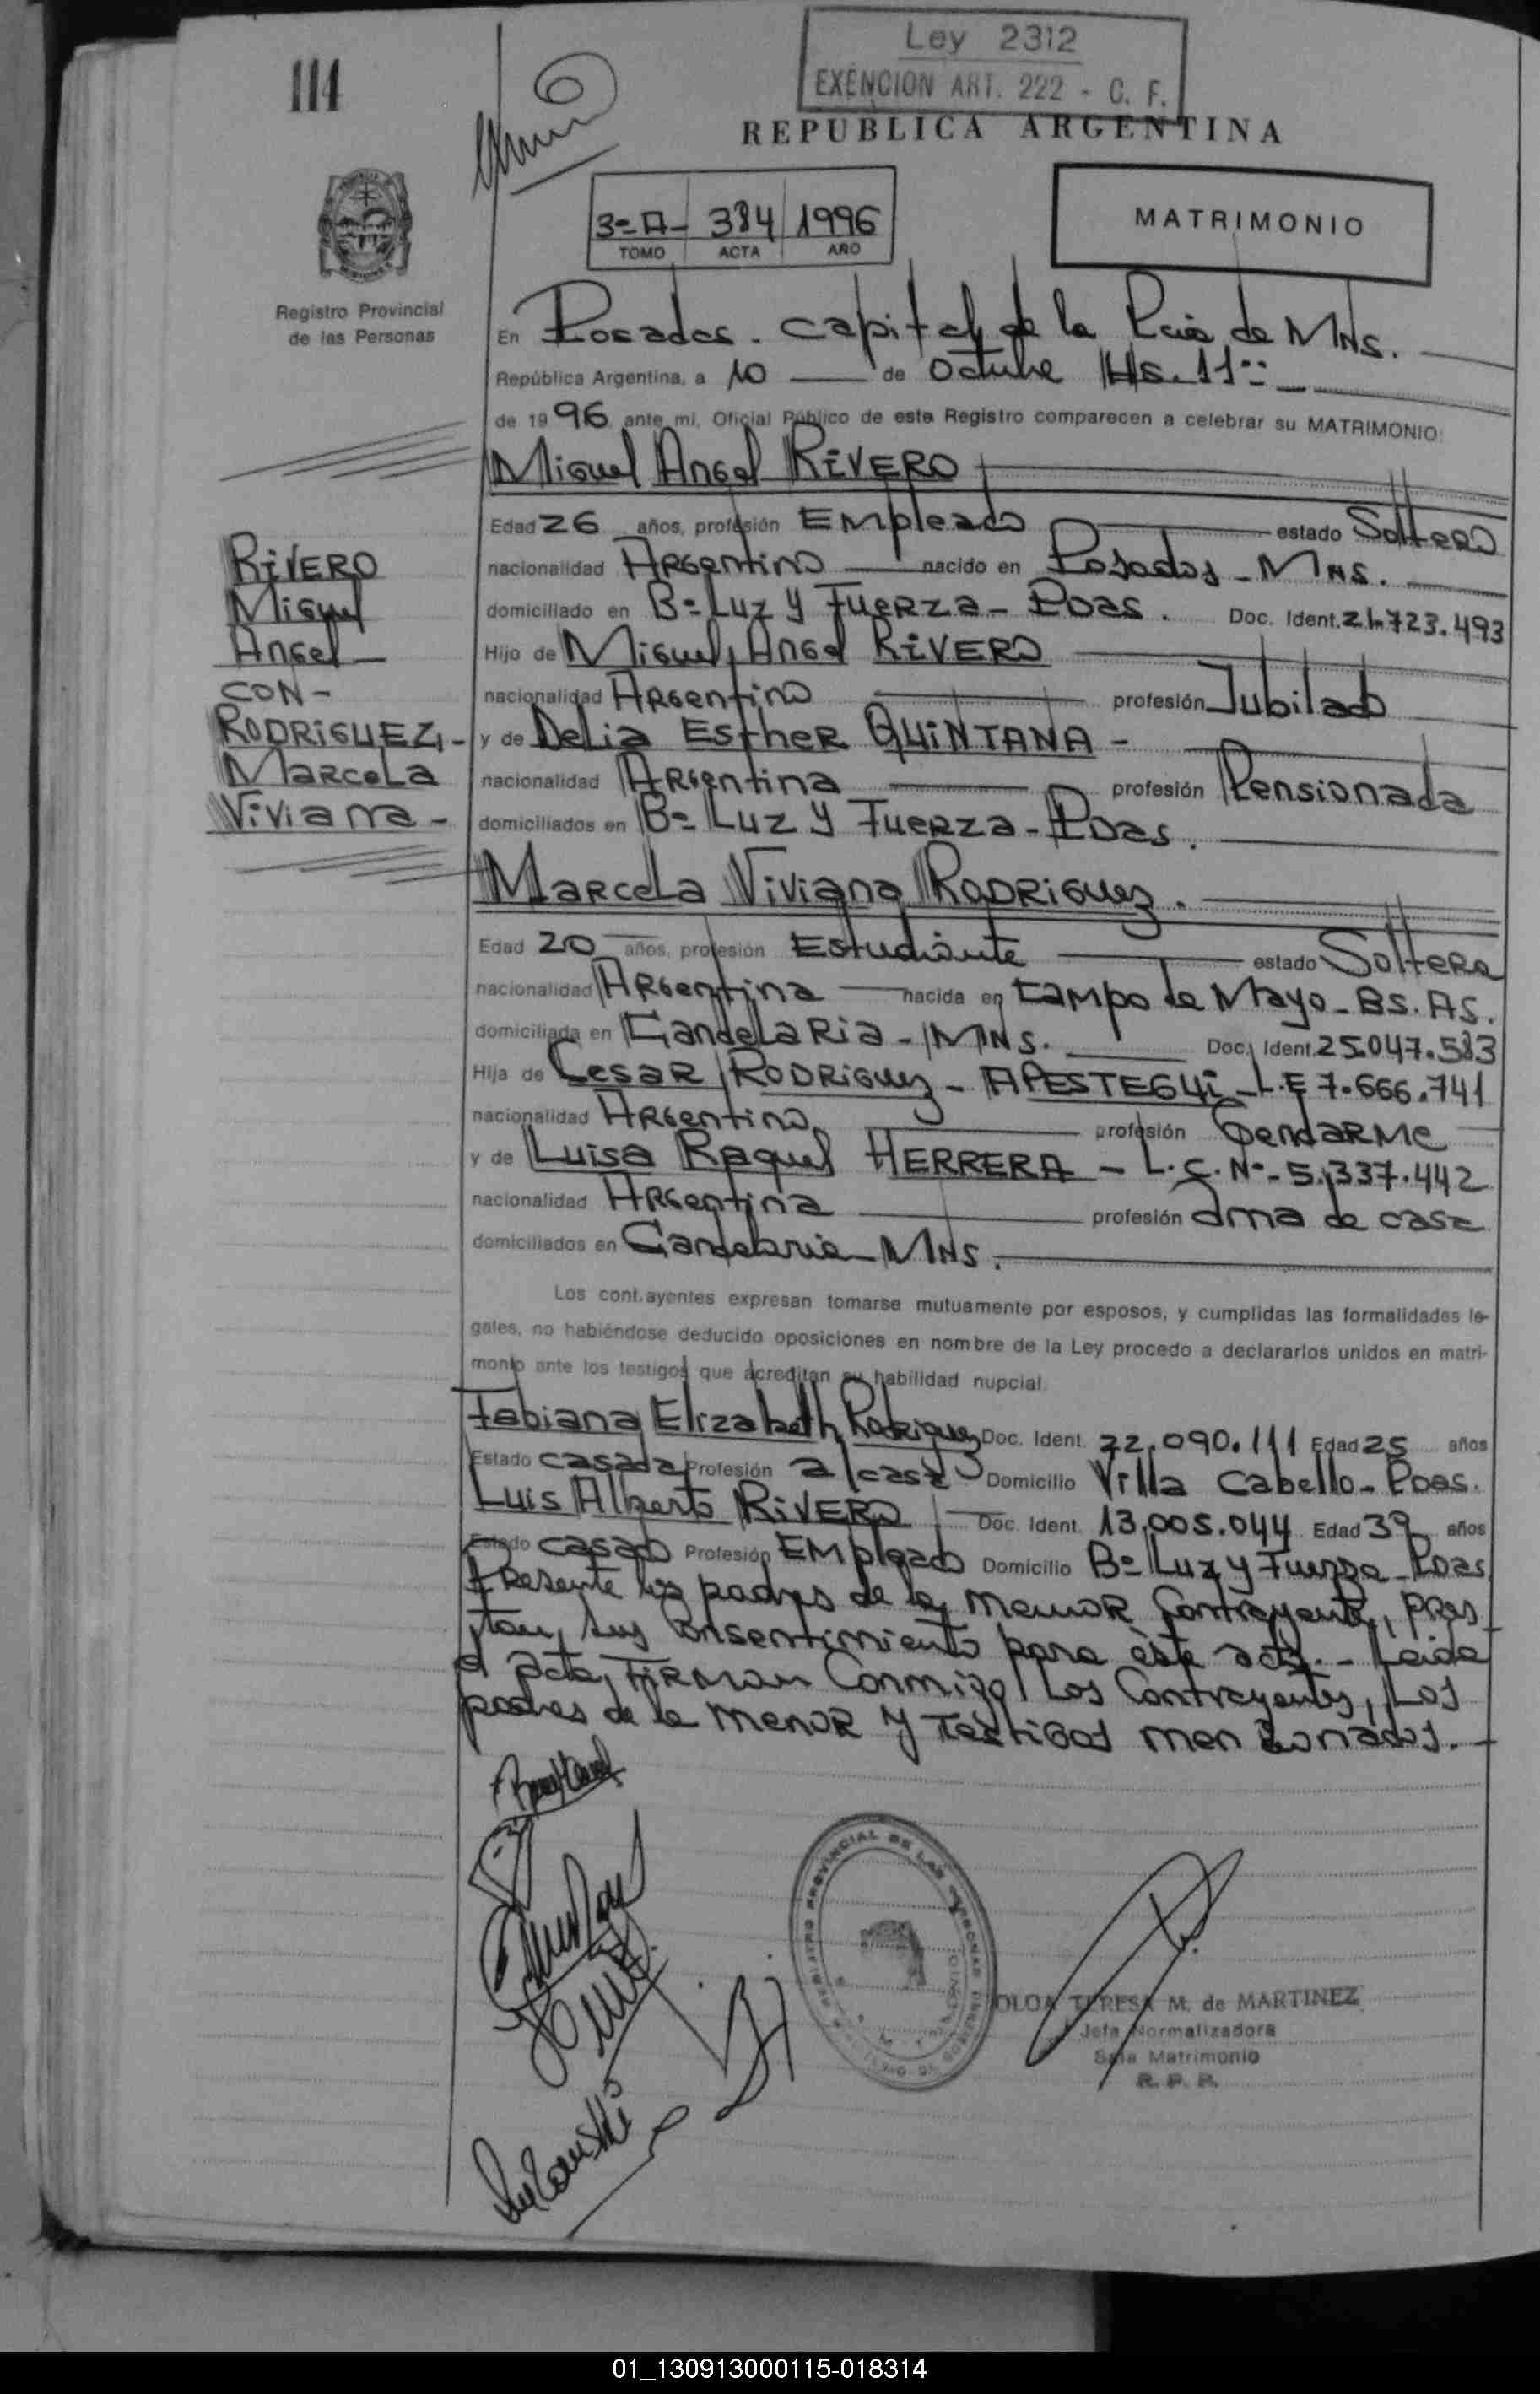 Ley 2312
EXENCION ART. 222 - C. F.
114
REPUBLICA ARGENTINA
3º A - 384 1996
TOMO ACTA AÑO
MATRIMONIO
Registro Provincial
de las Personas
En Posadas. Capital de la Pcia de MNS.
República Argentina, a 10 de octubre HS. 11
de 1996 ante mi, Oficial Público de este Registro comparecen a celebrar su MATRIMONIO:
Miguel Angel RIVERO
Edad 26 años, profesión Empleado estado Soltero
nacionalidad Argentino nacido en Posadas - MNS.
domiciliado en Bº Luz y Fuerza - Pdas. Doc. Ident. 21.723.493
Hijo de Miguel Angel RIVERO
nacionalidad Argentino profesión Jubilado
y de Delia Esther QUINTANA -
nacionalidad Argentina profesión Pensionada
domiciliados en Bº Luz y Fuerza - Pdas.
RIVERO
Miguel
Angel
CON -
RODRIGUEZ -
Marcela
Viviana -
Marcela Viviana Rodriguez.
Edad 20 años, profesión Estudiante estado Soltera
nacionalidad Argentina nacida en Campo de Mayo - BS. AS.
domiciliada en Candelaria - MNS. Doc. Ident. 25.047.583
Hija de Cesar Rodriguez - APESTEGUI - L.E 7.666.741
nacionalidad Argentino profesión Gendarme
y de Luisa Raquel HERRERA - L.C. Nº - 5.337.442
nacionalidad Argentina profesión ama de casa
domiciliados en Candelaria MNS.
Los contrayentes expresan tomarse mutuamente por esposos, y cumplidas las formalidades le-
gales, no habiéndose deducido oposiciones en nombre de la Ley procedo a declararlos unidos en matri-
monio ante los testigos que acreditan su habilidad nupcial.
Fabiana Elizabeth Rodriguez Doc. Ident. 22.090.111 Edad 25 años
Estado casada Profesión a/casa Domicilio Villa Cabello - Pdas.
Luis Alberto RIVERO Doc. Ident. 13.005.044 Edad 39 años
Estado casado Profesión Empleado Domicilio Bº Luz y Fuerza - Pdas
Presente los padres de la menor Contrayente, pres
tan sus Consentimiento para este acto. - Leida
el acta, Firman Conmigo Los Contrayentes, Los
padres de la menor y Testigos mencionados. -
REGISTRO PROVINCIAL DE LAS PERSONAS
TERESA M. de MARTINEZ
Jefa Normalizadora
Sala Matrimonio
R. P. P.
01_130913000115-018314